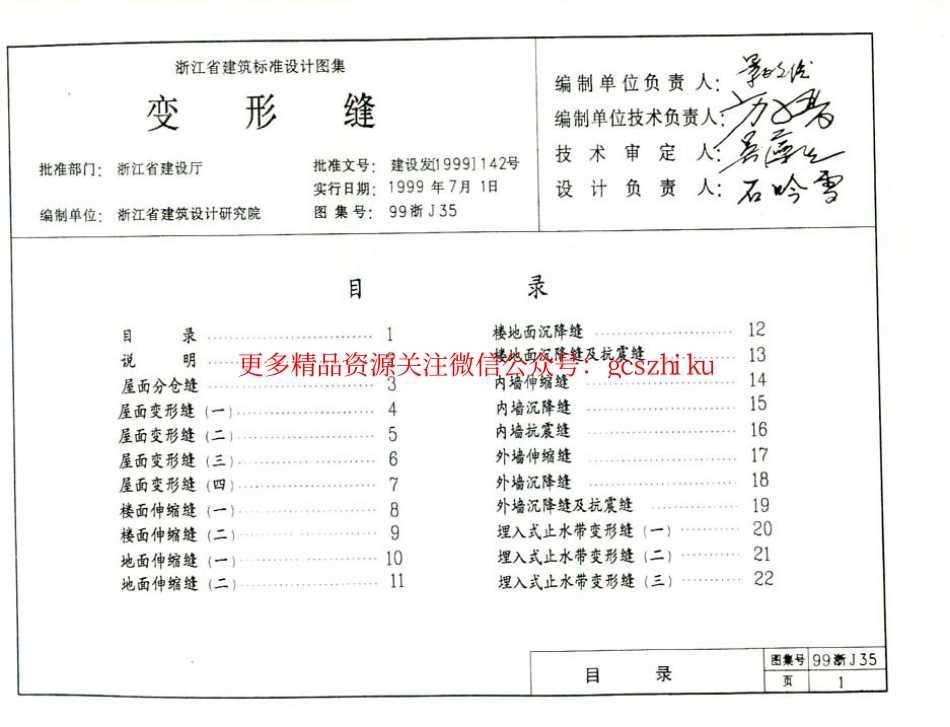 浙江省建筑标准设计图集
变形缝
批准部门: 浙江省建设厅
批准文号: 建设发[1999]142号
实行日期: 1999 年7月1日
编制单位: 浙江省建筑设计研究院
图集号: 99浙J35
编制单位负责人:
编制单位技术负责人:
技术审定人:
设计负责人: 石吟雪
目 录
目 录 1
说 明
屋面分仓缝 3
屋面变形缝 (一) 4
屋面变形缝 (二) 5
屋面变形缝 (三) 6
屋面变形缝 (四) 7
楼面伸缩缝 (一) 8
楼面伸缩缝 (二) 9
地面伸缩缝 (一) 10
地面伸缩缝 (二) 11
楼地面沉降缝 12
楼地面沉降缝及抗震缝 13
内墙伸缩缝 14
内墙沉降缝 15
内墙抗震缝 16
外墙伸缩缝 17
外墙沉降缝 18
外墙沉降缝及抗震缝 19
埋入式止水带变形缝 (一) 20
埋入式止水带变形缝 (二) 21
埋入式止水带变形缝 (三) 22
更多精品资源关注微信公众号: gcszhiku
目 录
图集号 99浙J35
页 1